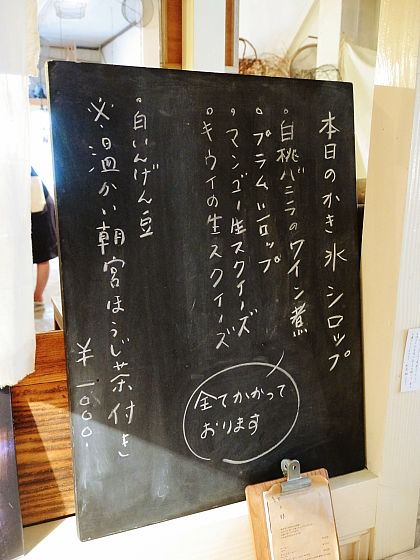 本日のかき氷シロップ
。白桃バニラのワイン煮
。プラムシロップ
。マンゴー生スクイーズ
。キウイの生スクイーズ
全てかかって
おります
。白いんげん豆
※温かい朝宮ほうじ茶付き
¥1000.